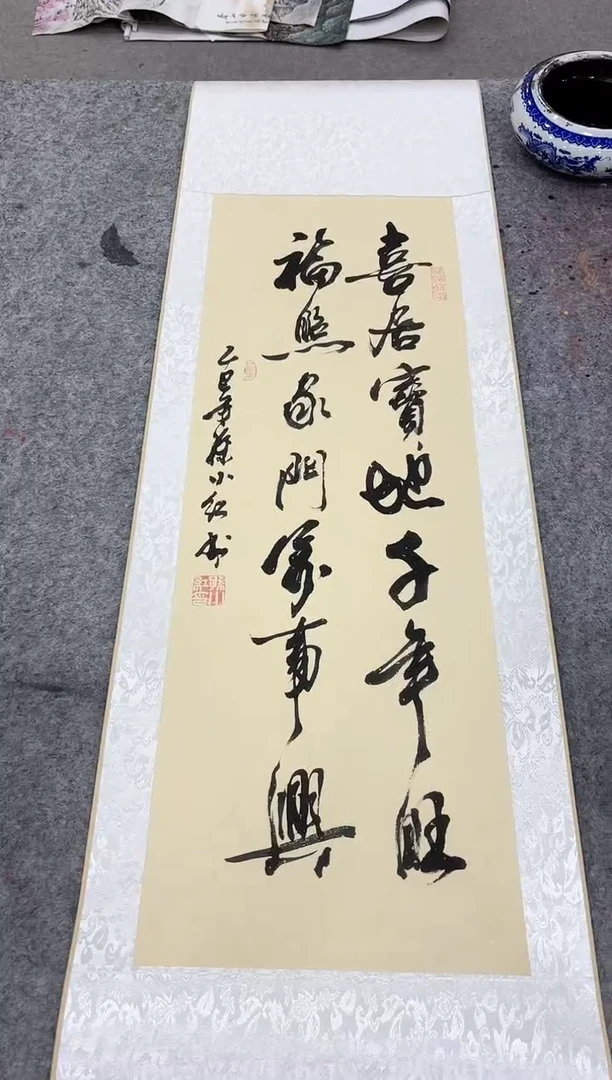 喜居寶地千年旺
福照家門萬事興
乙巳年 小红书